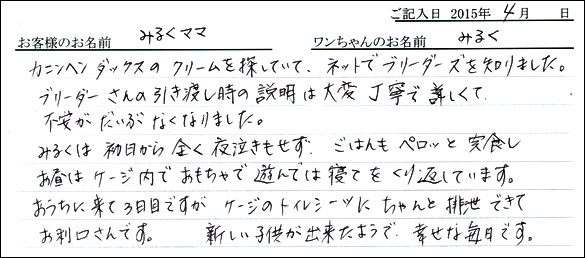 ご記入日 2015年 4月 日
お客様のお名前 みるくママ ワンちゃんのお名前 みるく
カニンヘンダックスのクリームを探していて、ネットでブリーダーズを知りました。
ブリーダーさんの引き渡し時の説明は大変丁寧で詳しくて
不安がだいぶなくなりました。
みるくは初日から全く夜泣きもせず、ごはんもペロッと完食し
お昼はケージ内でおもちゃで遊んでは寝てをくり返しています。
おうちに来て3日目ですがケージのトイレシーツにちゃんと排泄できて
お利口さんです。 新しい子供が出来たようで、幸せな毎日です。